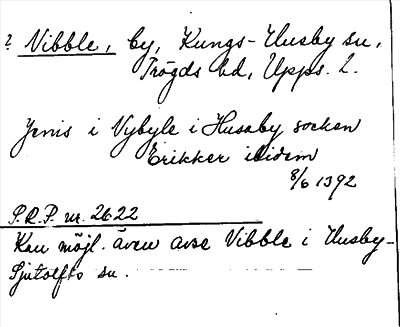 ? Vibble, by, Kungs-Husby sn,
Trögds hd, Upps. l.
Jenis i Vybyle i Husaby socken
Erikker ibidem
8/6 1392
S.R.P. nr. 2622
Kan möjl. även avse Vibble i Husby-
Sjutolfts sn.